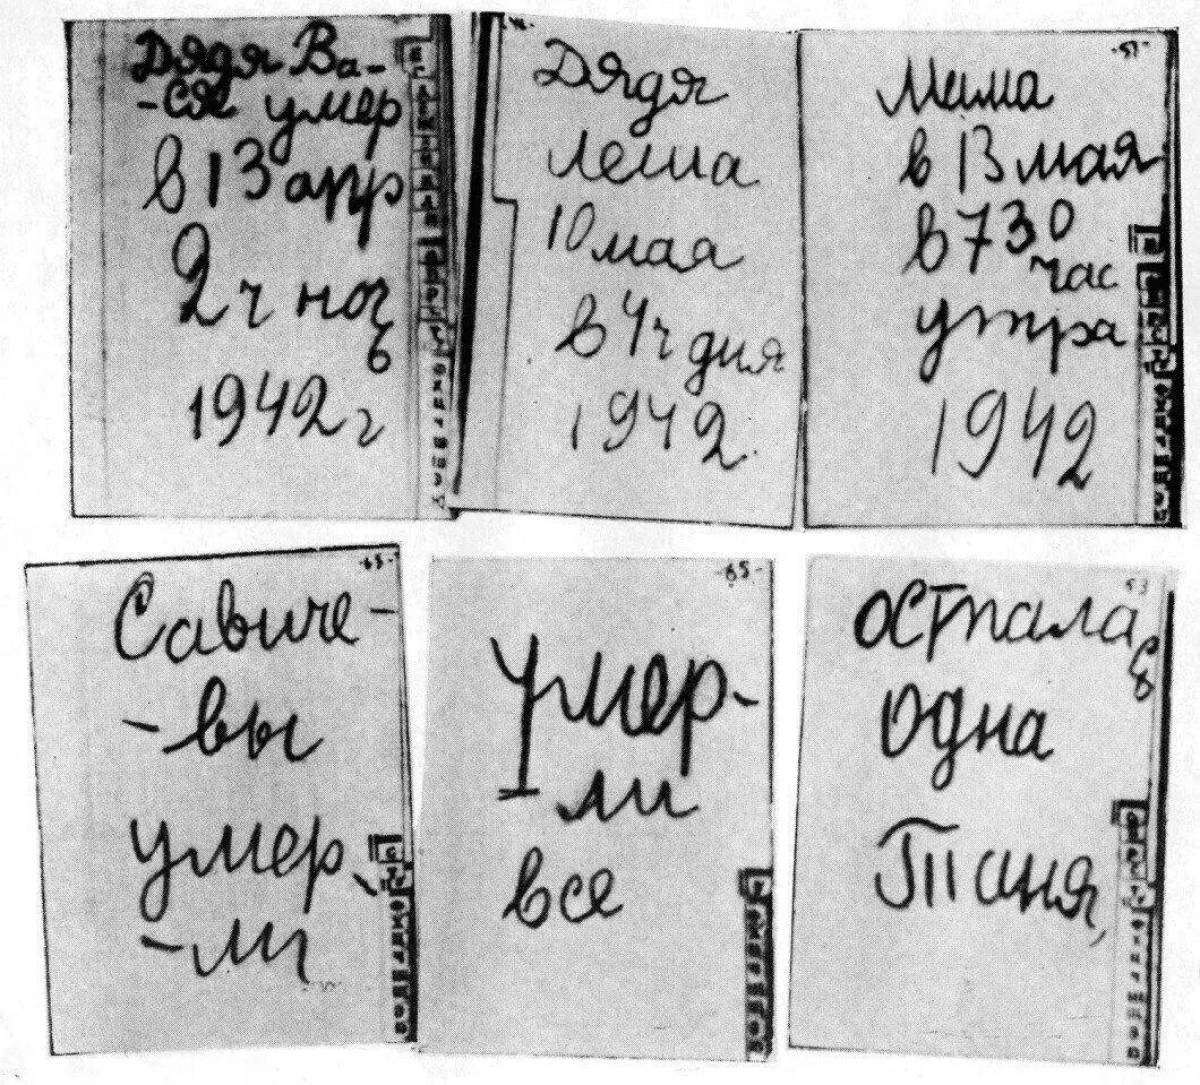 Дядя Ва-
-ся умер
в 13 апр
2 ч ноч
ь
1942 г
Дядя
Леша
10 мая
в 4 ч дня
1942
-51-
Мама
в 13 мая
в 730
час
утра
1942
Савиче-
-вы
умер
-ли
-65-
Умер-
-ли
все
53
Остала
сь
одна
Таня